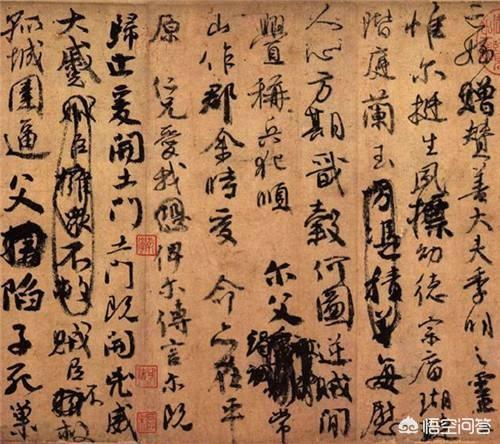 亡姪贈贊善大夫季明之靈
惟爾挺生夙標幼德宗廟瑚璉
階庭蘭玉方憑積善每慰
人心方期戩穀何圖逆賊間
釁稱兵犯順爾父竭誠常
山作郡余時受命亦在平
原仁兄愛我恐俾爾傳言爾既
歸止爰開土門土門既開兇威
大蹙賊臣擁眾不救賊臣不救
孤城圍逼父陷子死巢
悟空问答